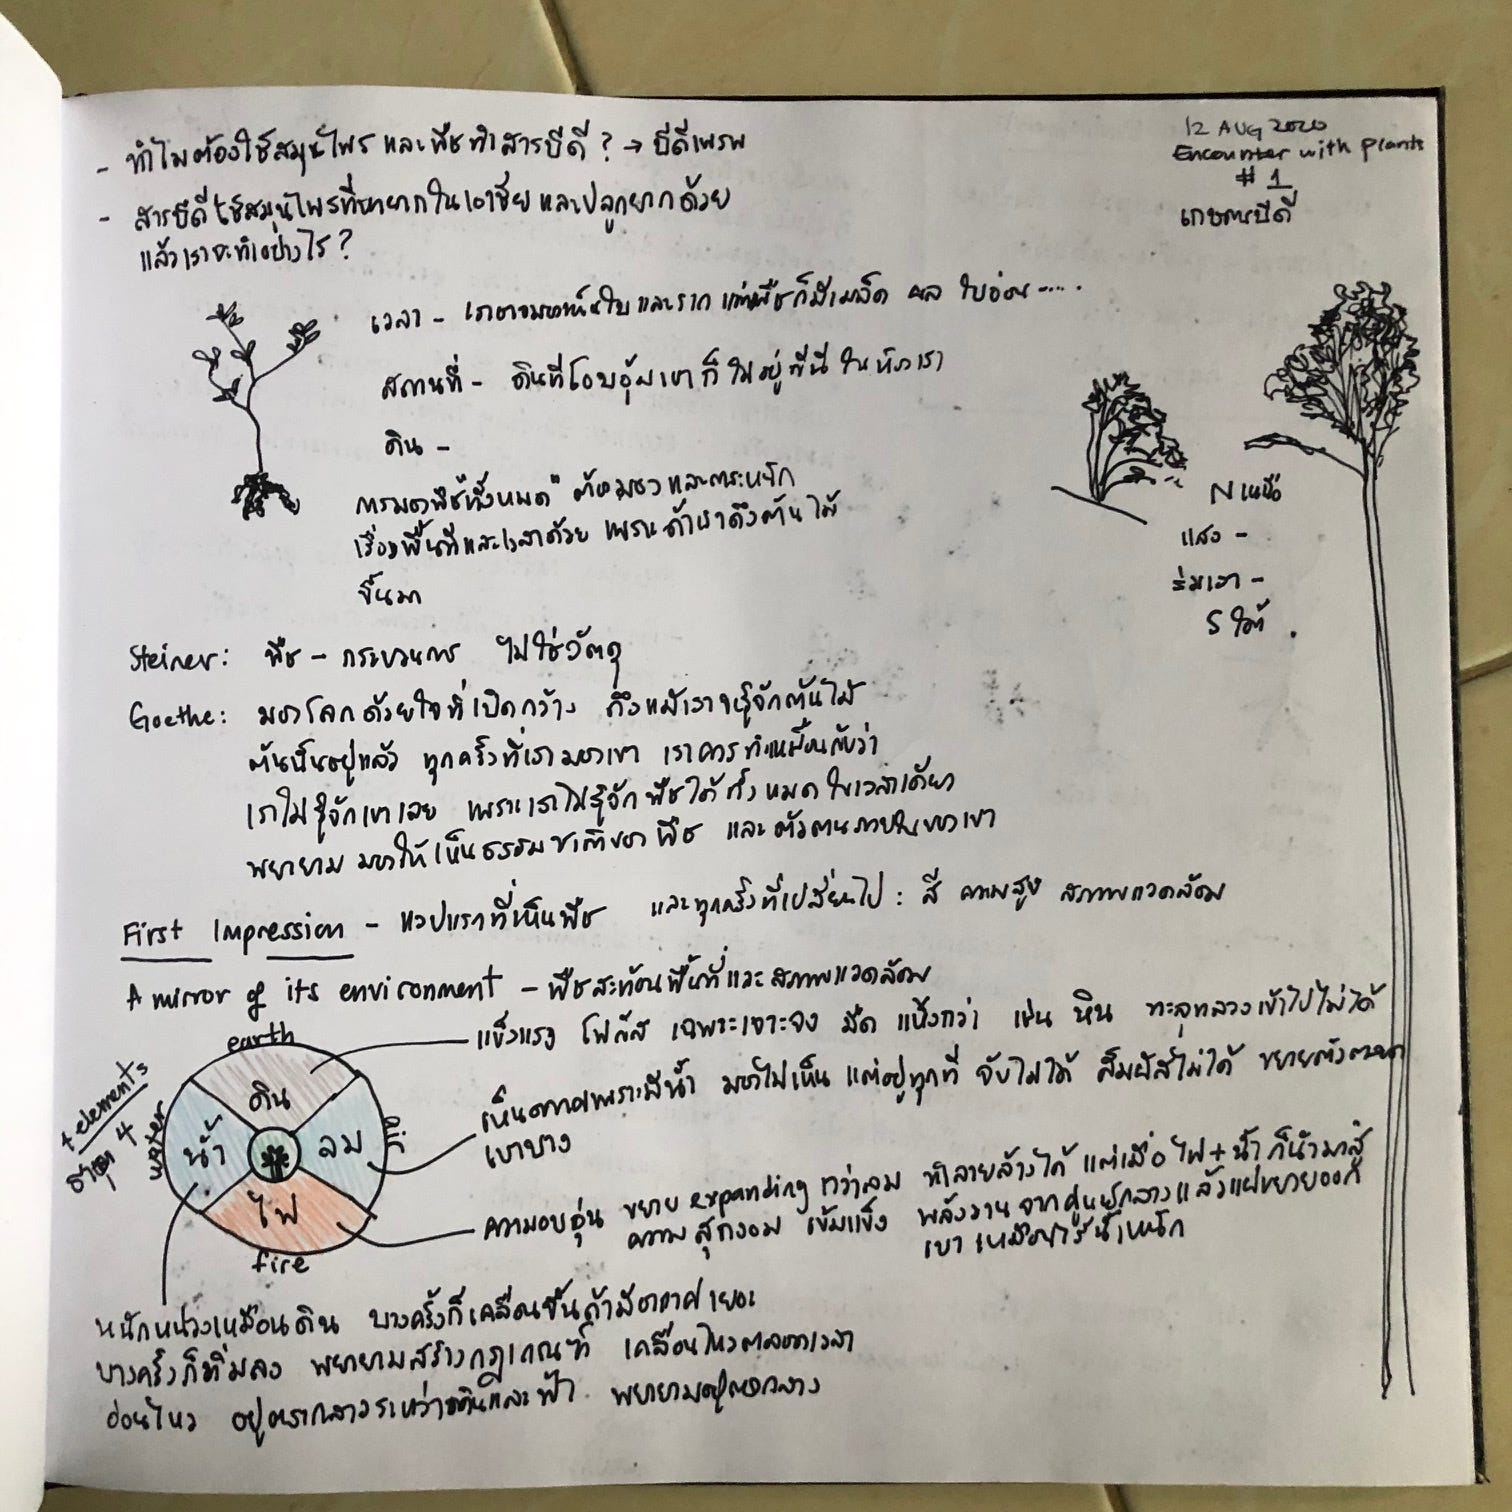 12 AUG 2020
Encounter with plants
# 1
เกษตรบีดี
- ทำไมต้องใช้สมุนไพร และพืชทำสารบีดี ? → บีดีเพรพ
- สารบีดีใช้สมุนไพรที่หายากในเอเชีย และปลูกยากด้วย
แล้วเราจะทำอย่างไร ?
เวลา - เราอาจมองเห็นใบและราก แต่พืชก็มีเมล็ด ผล ใบอ่อน.....
สถานที่ - ดินที่โอบอุ้มเขาก็ไม่อยู่ที่นี่ ในห้องเรา
ดิน -
การมองพืช"ทั้งหมด" ต้องมองและตระหนัก
เรื่องพื้นที่และเวลาด้วย เพราะถ้าเราดึงต้นไม้
ขึ้นมา
N เหนือ
แสง -
ร่มเงา -
S ใต้
Steiner: พืช - กระบวนการ ไม่ใช่วัตถุ
Goethe: มองโลกด้วยใจที่เปิดกว้าง ถึงแม้เราจะรู้จักต้นไม้
ต้นนั้นอยู่แล้ว ทุกครั้งที่เรามองเขา เราควรทำเหมือนกับว่า
เราไม่รู้จักเขาเลย เพราะเราไม่รู้จักพืชได้ทั้งหมดในเวลาเดียว
พยายาม มองให้เห็นธรรมชาติของพืช และตัวตนภายในของเขา
First Impression - แวปแรกที่เห็นพืช และทุกครั้งที่เปลี่ยนไป : สี ความสูง สภาพแวดล้อม
A mirror of its environment - พืชสะท้อนพื้นที่และสภาพแวดล้อม
4 elements
ธาตุ 4
earth
ดิน
water
น้ำ
ลม
air
ไฟ
fire
แข็งแรง โฟกัส เฉพาะเจาะจง มืด แห้งกว่า เช่น หิน ทะลุทลวงเข้าไปไม่ได้
เห็นอากาศเพราะมีน้ำ มองไม่เห็น แต่อยู่ทุกที่ จับไม่ได้ สัมผัสไม่ได้ ขยายตัวตลอด
เบาบาง
ความอบอุ่น ขยาย expanding กว่าลม ทำลายล้างได้ แต่เมื่อ ไฟ + น้ำ ก็นำมาสู่
ความสุกงอม เข้มแข็ง พลังงานจากศูนย์กลางแล้วแผ่ขยายออก
เบา เหมือนไร้น้ำหนัก
หนักหน่วงเหมือนดิน บางครั้งก็เคลื่อนขึ้นถ้ามีอากาศเยอะ
บางครั้งก็ทิ่มลง พยายามสร้างกฎเกณฑ์ เคลื่อนไหวตลอดเวลา
อ่อนไหว อยู่ตรงกลางระหว่างดินและฟ้า พยายามอยู่ตรงกลาง